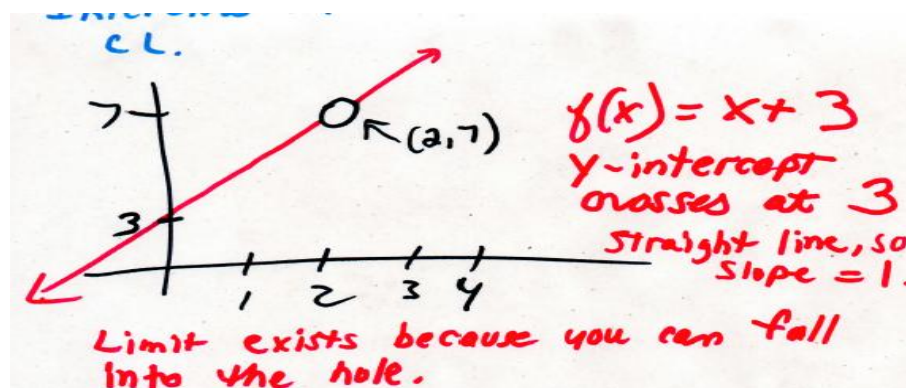 CL.
7
(2,7)
3
1 2 3 4
f(x) = x + 3
y-intercept
crosses at 3
straight line, so
slope = 1.
Limit exists because you can fall
into the hole.